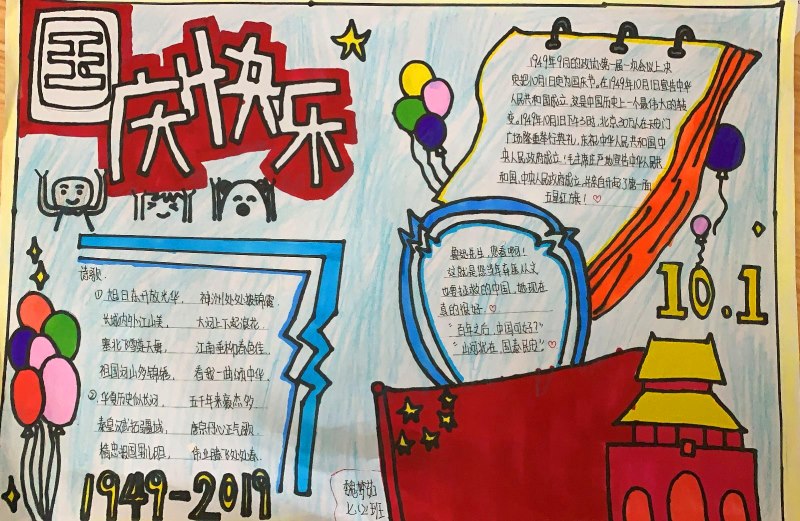 国庆快乐
诗歌:
①旭日东升放光华, 神州处处披锦霞
长城内外江山美, 大河上下起浪花
塞北飞雪 江南
祖国河山多锦绣, 看我一曲颂中华
②华夏历史似长河, 五千年来豪杰多
秦皇汉武拓疆域, 唐宗 正气歌
1949-2019
1949年9月的政协第一届一次会议上,决
定把10月1日定为国庆节。在1949年10月1日宣告中华
人民共和国成立,这是中国历史上一个最伟大的转
变。1949年10月1日下午3时,北京30万人在天安门
广场隆重举行典礼,庆祝中华人民共和国中
央人民政府成立。毛主席庄严地宣告中华人民共
和国,中央人民政府成立,并亲自升起了第一面
五星红旗!
先生,您看啊!
这就是您当年 从文
也要拯救的中国,她现在
真的很好。
“百年之后,中国可好?”
“山河犹在,国泰民安。”
10.1
班